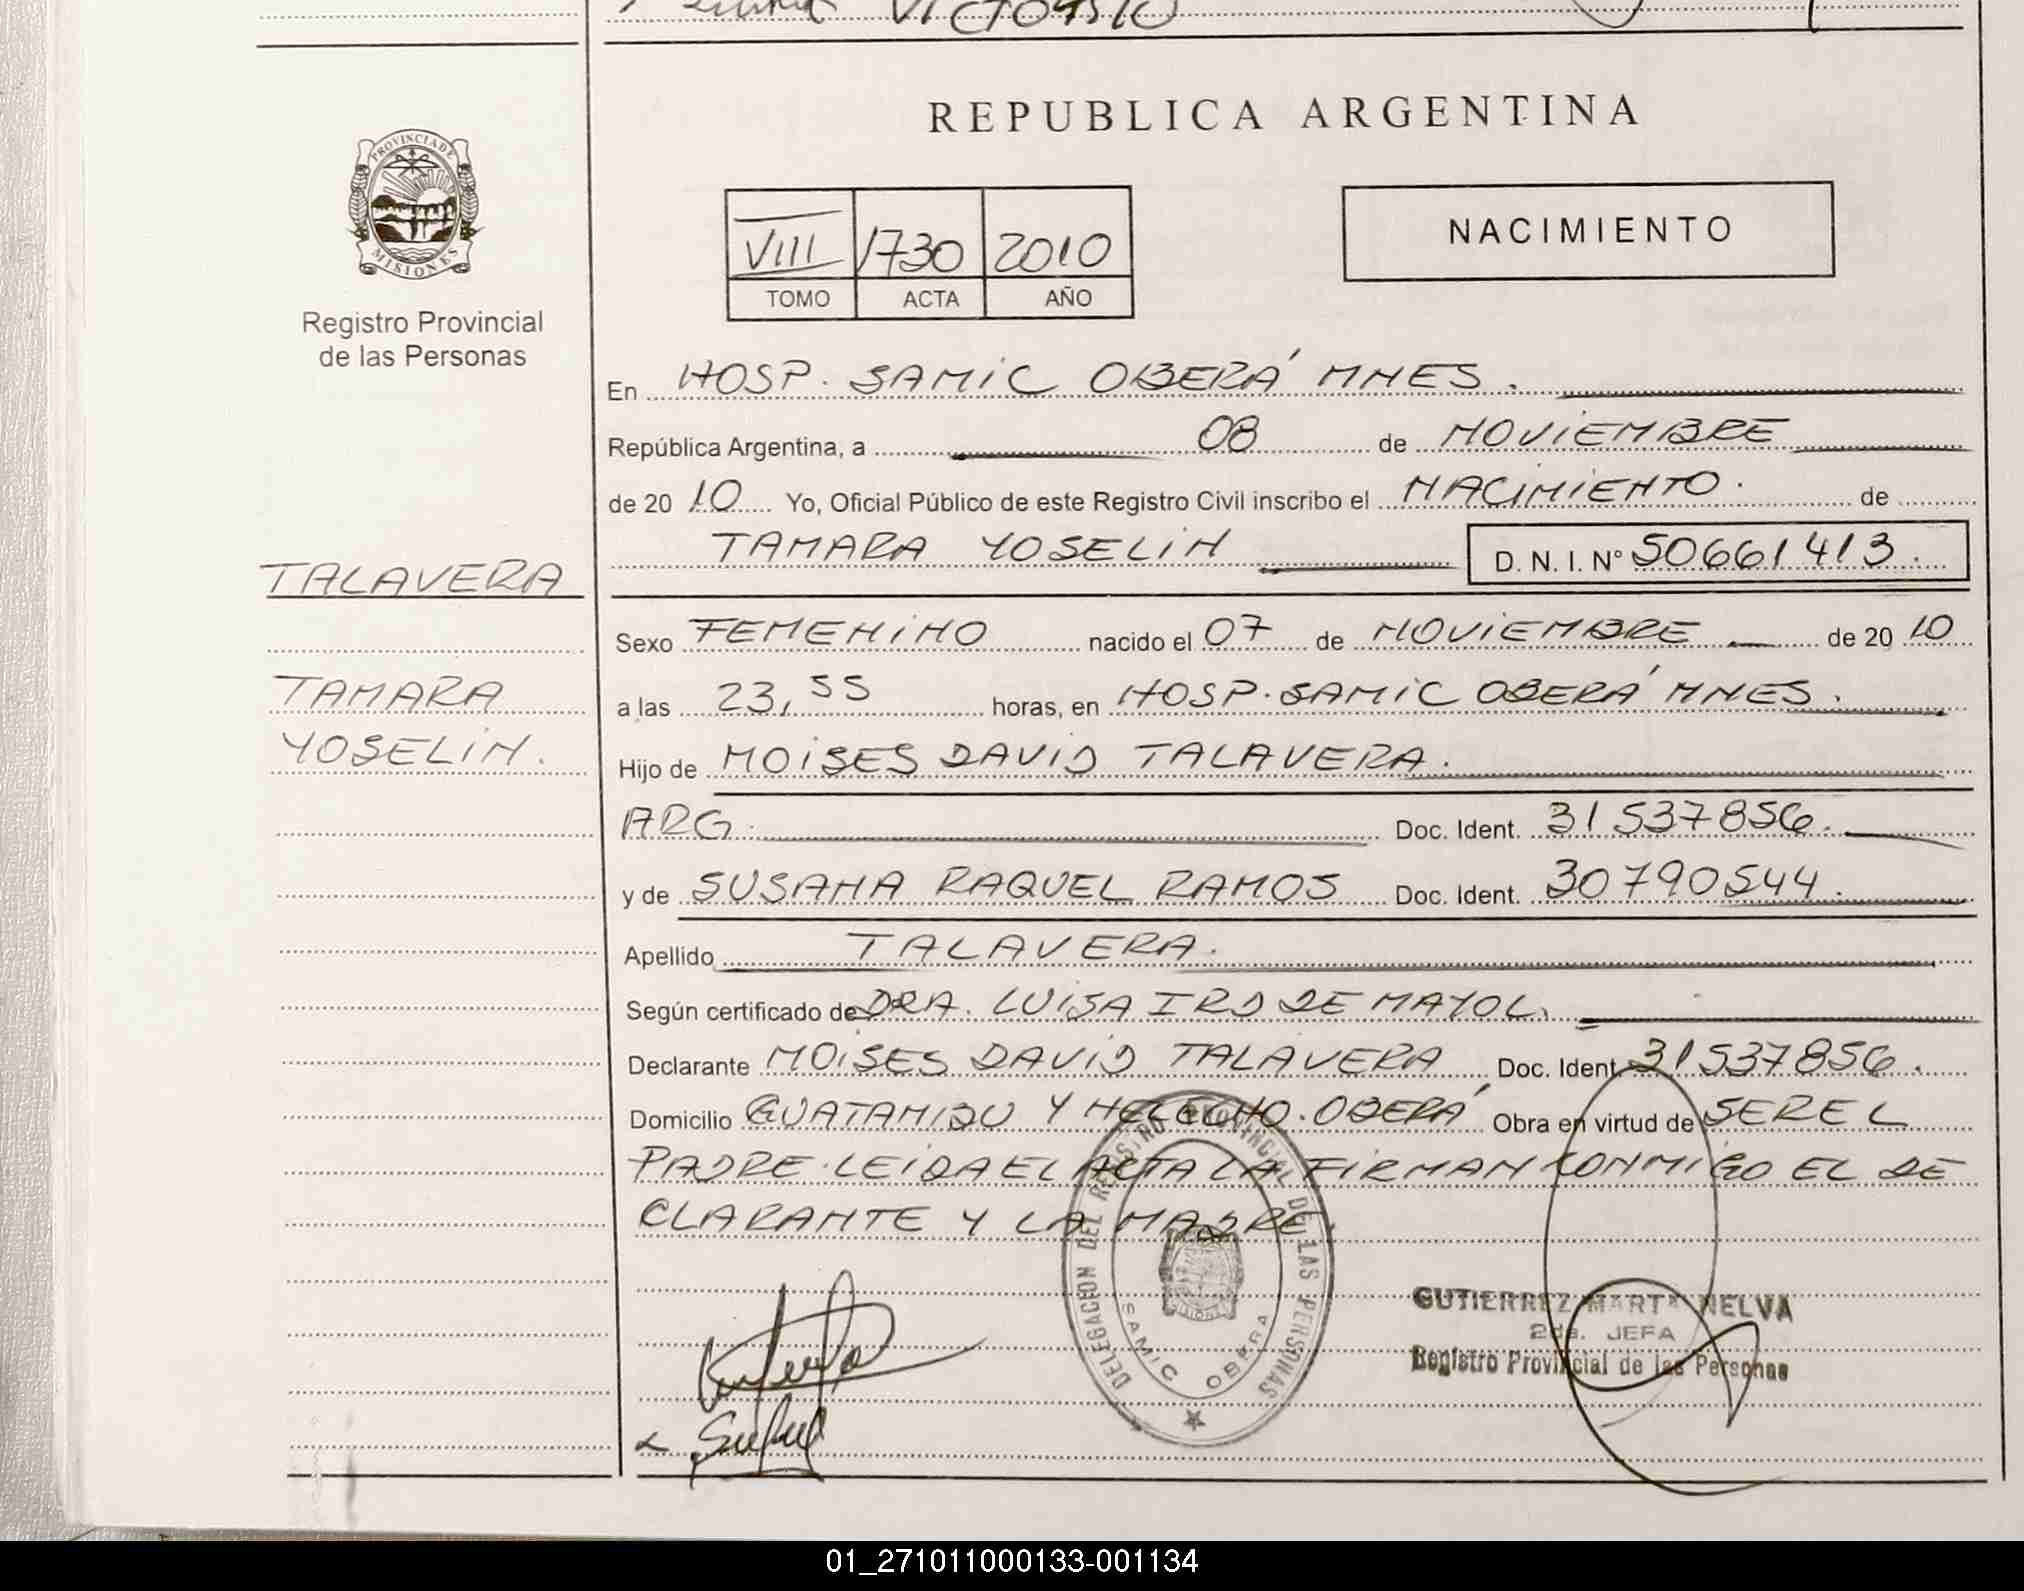 VICTORIO
REPUBLICA ARGENTINA
PROVINCIA DE
MISIONES
Registro Provincial
de las Personas
VIII 1730 2010
TOMO ACTA AÑO
NACIMIENTO
En HOSP. SAMIC OBERÁ MNES.
República Argentina, a 08 de NOVIEMBRE
de 20 10 Yo, Oficial Público de este Registro Civil inscribo el NACIMIENTO. de
TAMARA YOSELIN D. N. I. Nº 50661413.
TALAVERA
TAMARA
YOSELIN.
Sexo FEMENINO nacido el 07 de NOVIEMBRE de 20 10
a las 23,55 horas, en HOSP. SAMIC OBERÁ MNES.
Hijo de MOISES DAVID TALAVERA.
ARG. Doc. Ident. 31537856.
y de SUSANA RAQUEL RAMOS Doc. Ident. 30790544.
Apellido TALAVERA.
Según certificado de DRA. LUISA IRD DE MAYOL.
Declarante MOISES DAVID TALAVERA Doc. Ident. 31537856.
Domicilio GUATAMBU Y HELECHO. OBERÁ Obra en virtud de SER EL
PADRE. LEIDA EL ACTA LA FIRMAN CONMIGO EL DE
CLARANTE Y LA MADRE.
DELEGACION DEL REGISTRO PROVINCIAL DE LAS PERSONAS
SAMIC OBERA
GUTIERREZ MARTA NELVA
2da. JEFA
Registro Provincial de las Personas
01_271011000133-001134